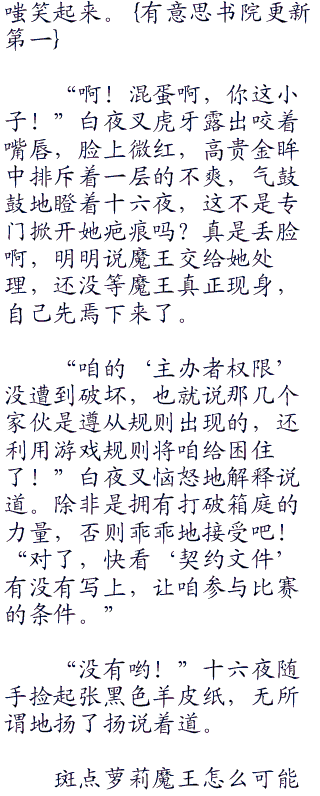 嗤笑起来。{有意思书院更新
第一}
“啊！混蛋啊，你这小
子！”白夜叉虎牙露出咬着
嘴唇，脸上微红，高贵金眸
中排斥着一层的不爽，气鼓
鼓地瞪着十六夜，这不是专
门掀开她疤痕吗？真是丢脸
啊，明明说魔王交给她处
理，还没等魔王真正现身，
自己先焉下来了。
“咱的‘主办者权限’
没遭到破坏，也就说那几个
家伙是遵从规则出现的，还
利用游戏规则将咱给困住
了！”白夜叉恼怒地解释说
道。除非是拥有打破箱庭的
力量，否则乖乖地接受吧！
“对了，快看‘契约文件’
有没有写上，让咱参与比赛
的条件。”
“没有哟！”十六夜随
手捡起张黑色羊皮纸，无所
谓地扬了扬说着道。
斑点萝莉魔王怎么可能